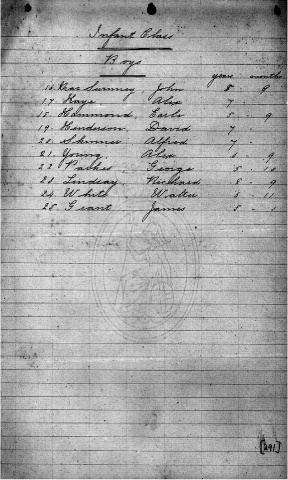 Infant Class
Boys
years months
16. John 8 9
17. Kaye Alex 7
18. Hammond, Earle 8 9
19. Henderson, David 7
20. Skinner Alfred 7
21. Young, Alex 6 9
22. Parkes George 5 10
23. Lindsay Richard 8 9
24. White Walter 6 11
25. Grant James 8 1
[291]